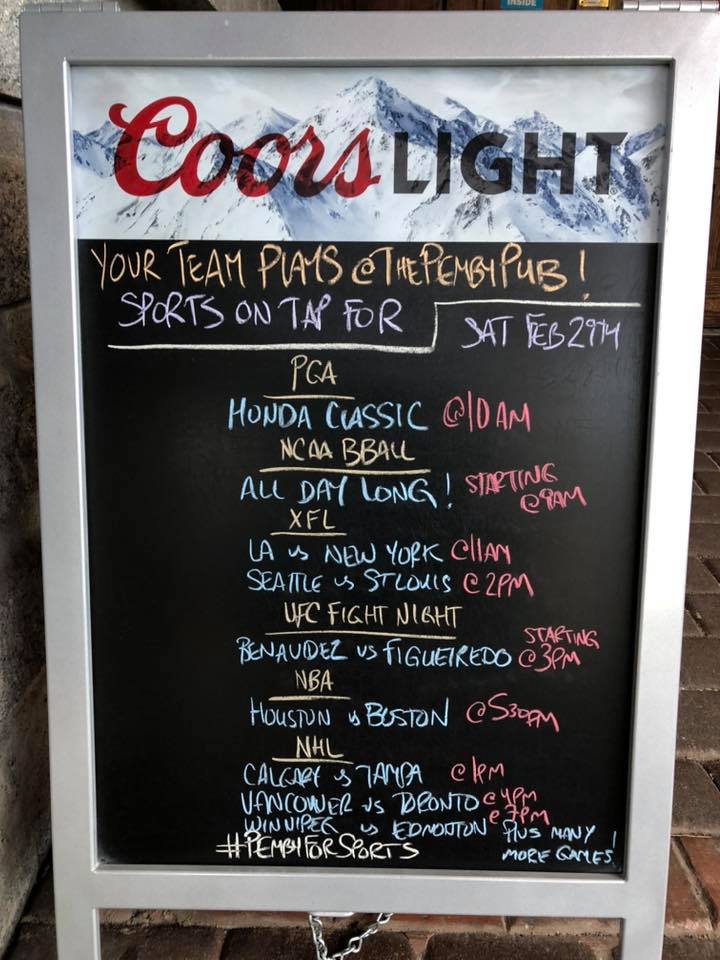 INSIDE
Coors LIGHT
YOUR TEAM PLAYS @THEPEMBYPUB!
SPORTS ON TAP FOR SAT FEB 29TH
PGA
HONDA CLASSIC @10AM
NCAA BBALL
ALL DAY LONG! STARTING @9AM
XFL
LA vs NEW YORK @11AM
SEATTLE vs ST LOUIS @2PM
UFC FIGHT NIGHT
BENAVIDEZ vs FIGUEIREDO STARTING @3PM
NBA
HOUSTON vs BOSTON @530PM
NHL
CALGARY vs TAMPA @1PM
VANCOUVER vs TORONTO @4PM
WINNIPEG vs EDMONTON @7PM
#PEMBYFORSPORTS PLUS MANY MORE GAMES!